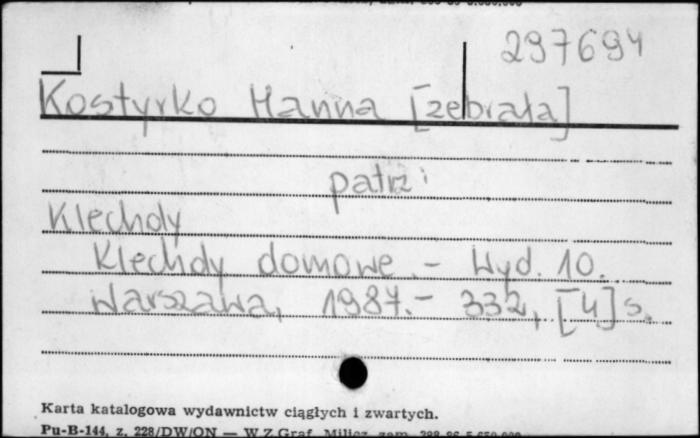 297694
Kostyrko Hanna [zebrała]
patrz:
Klechdy
Klechdy domowe. - Wyd. 10.
Warszawa, 1987. - 332, [4] s.
Karta katalogowa wydawnictw ciągłych i zwartych.
Pu-B-144, z. 228/DW/ON — W.Z.Graf. Milicz, zam.